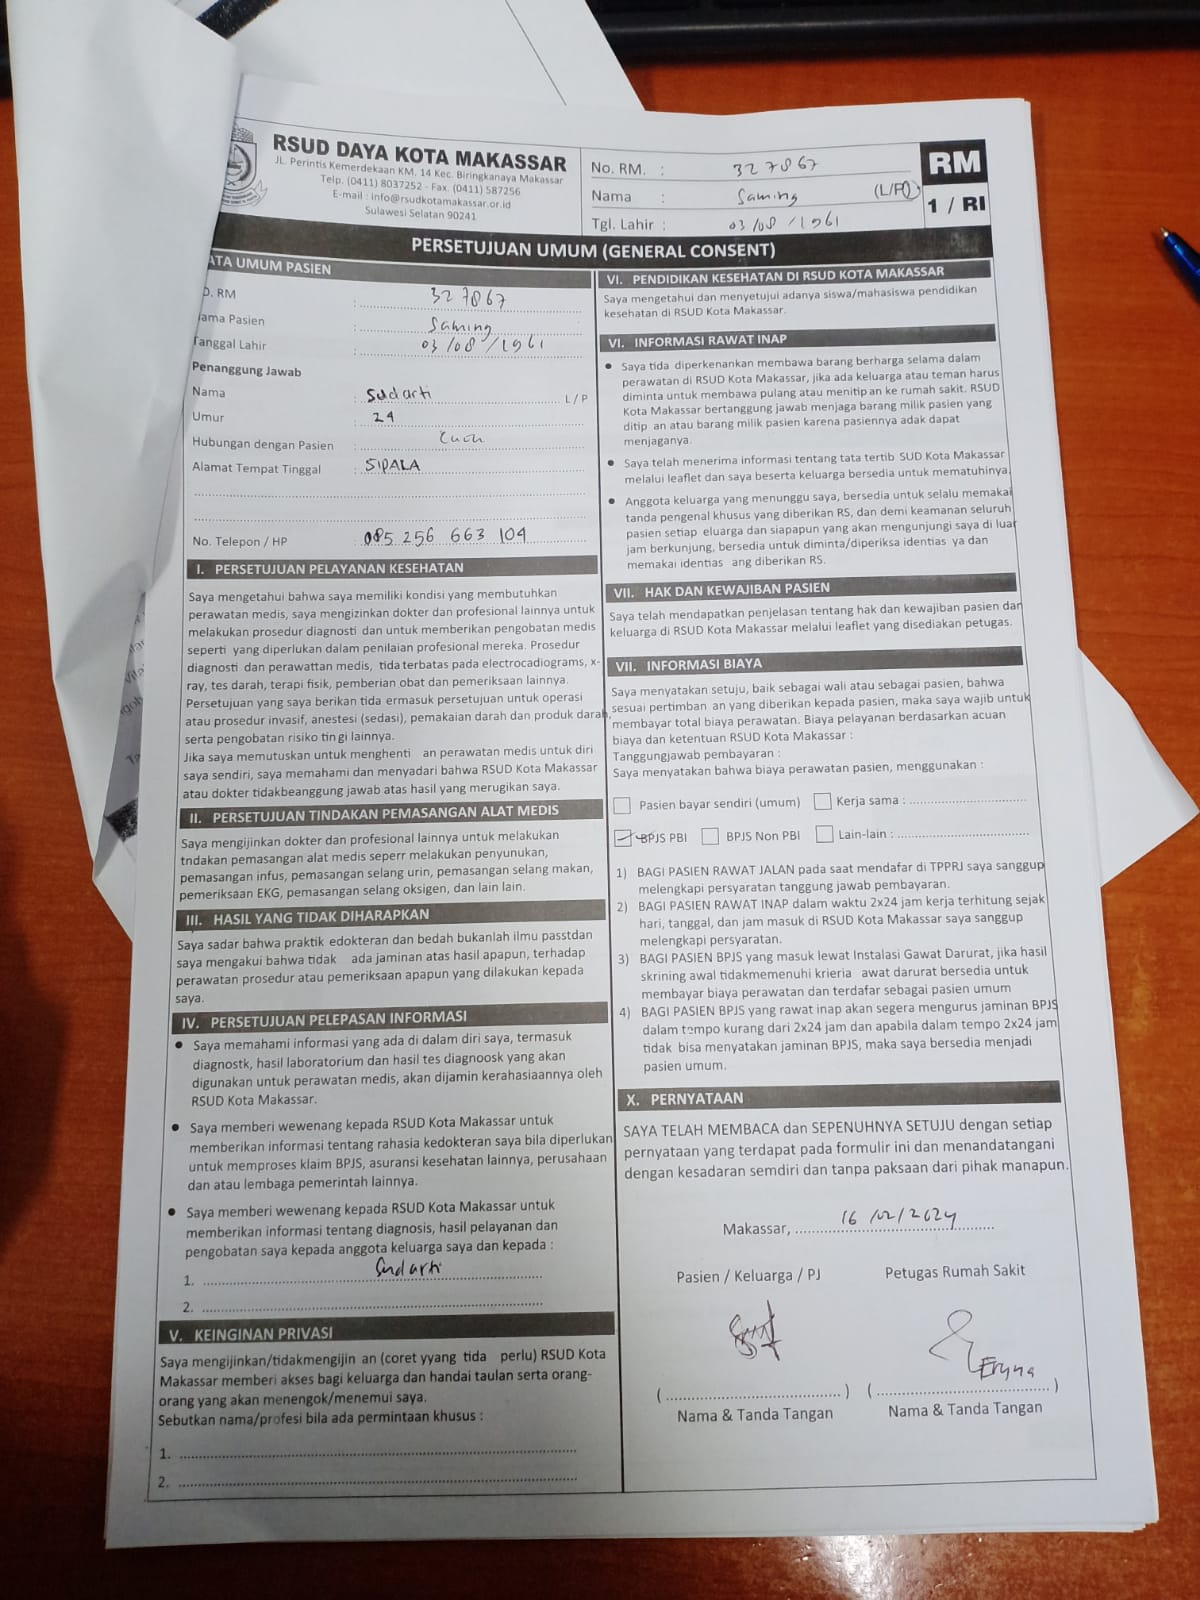 RSUD DAYA KOTA MAKASSAR
JL. Perintis Kemerdekaan KM. 14 Kec. Biringkanaya Makassar
Telp. (0411) 8037252 - Fax. (0411) 587256
E-mail : info@rsudkotamakassar.or.id
Sulawesi Selatan 90241
No. RM. : 327867
Nama : Saming (L/P)
Tgl. Lahir : 03/08/1961
RM
1 / RI
PERSETUJUAN UMUM (GENERAL CONSENT)
ATA UMUM PASIEN
O. RM : 327867
ama Pasien : Saming
Tanggal Lahir : 03/08/1961
Penanggung Jawab
Nama : Sudarti L / P
Umur : 24
Hubungan dengan Pasien :
Alamat Tempat Tinggal : SIPALA
No. Telepon / HP : 085 256 663 104
I. PERSETUJUAN PELAYANAN KESEHATAN
Saya mengetahui bahwa saya memiliki kondisi yang membutuhkan
perawatan medis, saya mengizinkan dokter dan profesional lainnya untuk
melakukan prosedur diagnosti dan untuk memberikan pengobatan medis
seperti yang diperlukan dalam penilaian profesional mereka. Prosedur
diagnosti dan perawattan medis, tida terbatas pada electrocadiograms, x-
ray, tes darah, terapi fisik, pemberian obat dan pemeriksaan lainnya.
Persetujuan yang saya berikan tida ermasuk persetujuan untuk operasi
atau prosedur invasif, anestesi (sedasi), pemakaian darah dan produk darah,
serta pengobatan risiko tin gi lainnya.
Jika saya memutuskan untuk menghenti an perawatan medis untuk diri
saya sendiri, saya memahami dan menyadari bahwa RSUD Kota Makassar
atau dokter tidakbeanggung jawab atas hasil yang merugikan saya.
II. PERSETUJUAN TINDAKAN PEMASANGAN ALAT MEDIS
Saya mengijinkan dokter dan profesional lainnya untuk melakukan
tndakan pemasangan alat medis seperr melakukan penyunukan,
pemasangan infus, pemasangan selang urin, pemasangan selang makan,
pemeriksaan EKG, pemasangan selang oksigen, dan lain lain.
III. HASIL YANG TIDAK DIHARAPKAN
Saya sadar bahwa praktik edokteran dan bedah bukanlah ilmu passtdan
saya mengakui bahwa tidak ada jaminan atas hasil apapun, terhadap
perawatan prosedur atau pemeriksaan apapun yang dilakukan kepada
saya.
IV. PERSETUJUAN PELEPASAN INFORMASI
• Saya memahami informasi yang ada di dalam diri saya, termasuk
diagnostk, hasil laboratorium dan hasil tes diagnoosk yang akan
digunakan untuk perawatan medis, akan dijamin kerahasiaannya oleh
RSUD Kota Makassar.
• Saya memberi wewenang kepada RSUD Kota Makassar untuk
memberikan informasi tentang rahasia kedokteran saya bila diperlukan
untuk memproses klaim BPJS, asuransi kesehatan lainnya, perusahaan
dan atau lembaga pemerintah lainnya.
• Saya memberi wewenang kepada RSUD Kota Makassar untuk
memberikan informasi tentang diagnosis, hasil pelayanan dan
pengobatan saya kepada anggota keluarga saya dan kepada :
1. Sudarti
2.
V. KEINGINAN PRIVASI
Saya mengijinkan/tidakmengijin an (coret yyang tida perlu) RSUD Kota
Makassar memberi akses bagi keluarga dan handai taulan serta orang-
orang yang akan menengok/menemui saya.
Sebutkan nama/profesi bila ada permintaan khusus :
1.
2.
VI. PENDIDIKAN KESEHATAN DI RSUD KOTA MAKASSAR
Saya mengetahui dan menyetujui adanya siswa/mahasiswa pendidikan
kesehatan di RSUD Kota Makassar.
VI. INFORMASI RAWAT INAP
• Saya tida diperkenankan membawa barang berharga selama dalam
perawatan di RSUD Kota Makassar, jika ada keluarga atau teman harus
diminta untuk membawa pulang atau menitip an ke rumah sakit. RSUD
Kota Makassar bertanggung jawab menjaga barang milik pasien yang
ditip an atau barang milik pasien karena pasiennya adak dapat
menjaganya.
• Saya telah menerima informasi tentang tata tertib SUD Kota Makassar
melalui leaflet dan saya beserta keluarga bersedia untuk mematuhinya.
• Anggota keluarga yang menunggu saya, bersedia untuk selalu memakai
tanda pengenal khusus yang diberikan RS, dan demi keamanan seluruh
pasien setiap eluarga dan siapapun yang akan mengunjungi saya di luar
jam berkunjung, bersedia untuk diminta/diperiksa identias ya dan
memakai identias ang diberikan RS.
VII. HAK DAN KEWAJIBAN PASIEN
Saya telah mendapatkan penjelasan tentang hak dan kewajiban pasien dan
keluarga di RSUD Kota Makassar melalui leaflet yang disediakan petugas.
VII. INFORMASI BIAYA
Saya menyatakan setuju, baik sebagai wali atau sebagai pasien, bahwa
sesuai pertimban an yang diberikan kepada pasien, maka saya wajib untuk
membayar total biaya perawatan. Biaya pelayanan berdasarkan acuan
biaya dan ketentuan RSUD Kota Makassar :
Tanggungjawab pembayaran :
Saya menyatakan bahwa biaya perawatan pasien, menggunakan :
Pasien bayar sendiri (umum) Kerja sama :
BPJS PBI BPJS Non PBI Lain-lain :
1) BAGI PASIEN RAWAT JALAN pada saat mendafar di TPPRJ saya sanggup
melengkapi persyaratan tanggung jawab pembayaran.
2) BAGI PASIEN RAWAT INAP dalam waktu 2x24 jam kerja terhitung sejak
hari, tanggal, dan jam masuk di RSUD Kota Makassar saya sanggup
melengkapi persyaratan.
3) BAGI PASIEN BPJS yang masuk lewat Instalasi Gawat Darurat, jika hasil
skrining awal tidakmemenuhi krieria awat darurat bersedia untuk
membayar biaya perawatan dan terdafar sebagai pasien umum
4) BAGI PASIEN BPJS yang rawat inap akan segera mengurus jaminan BPJS
dalam tempo kurang dari 2x24 jam dan apabila dalam tempo 2x24 jam
tidak bisa menyatakan jaminan BPJS, maka saya bersedia menjadi
pasien umum.
X. PERNYATAAN
SAYA TELAH MEMBACA dan SEPENUHNYA SETUJU dengan setiap
pernyataan yang terdapat pada formulir ini dan menandatangani
dengan kesadaran semdiri dan tanpa paksaan dari pihak manapun.
Makassar, 16/02/2024
Pasien / Keluarga / PJ Petugas Rumah Sakit
Eryna
Nama & Tanda Tangan Nama & Tanda Tangan